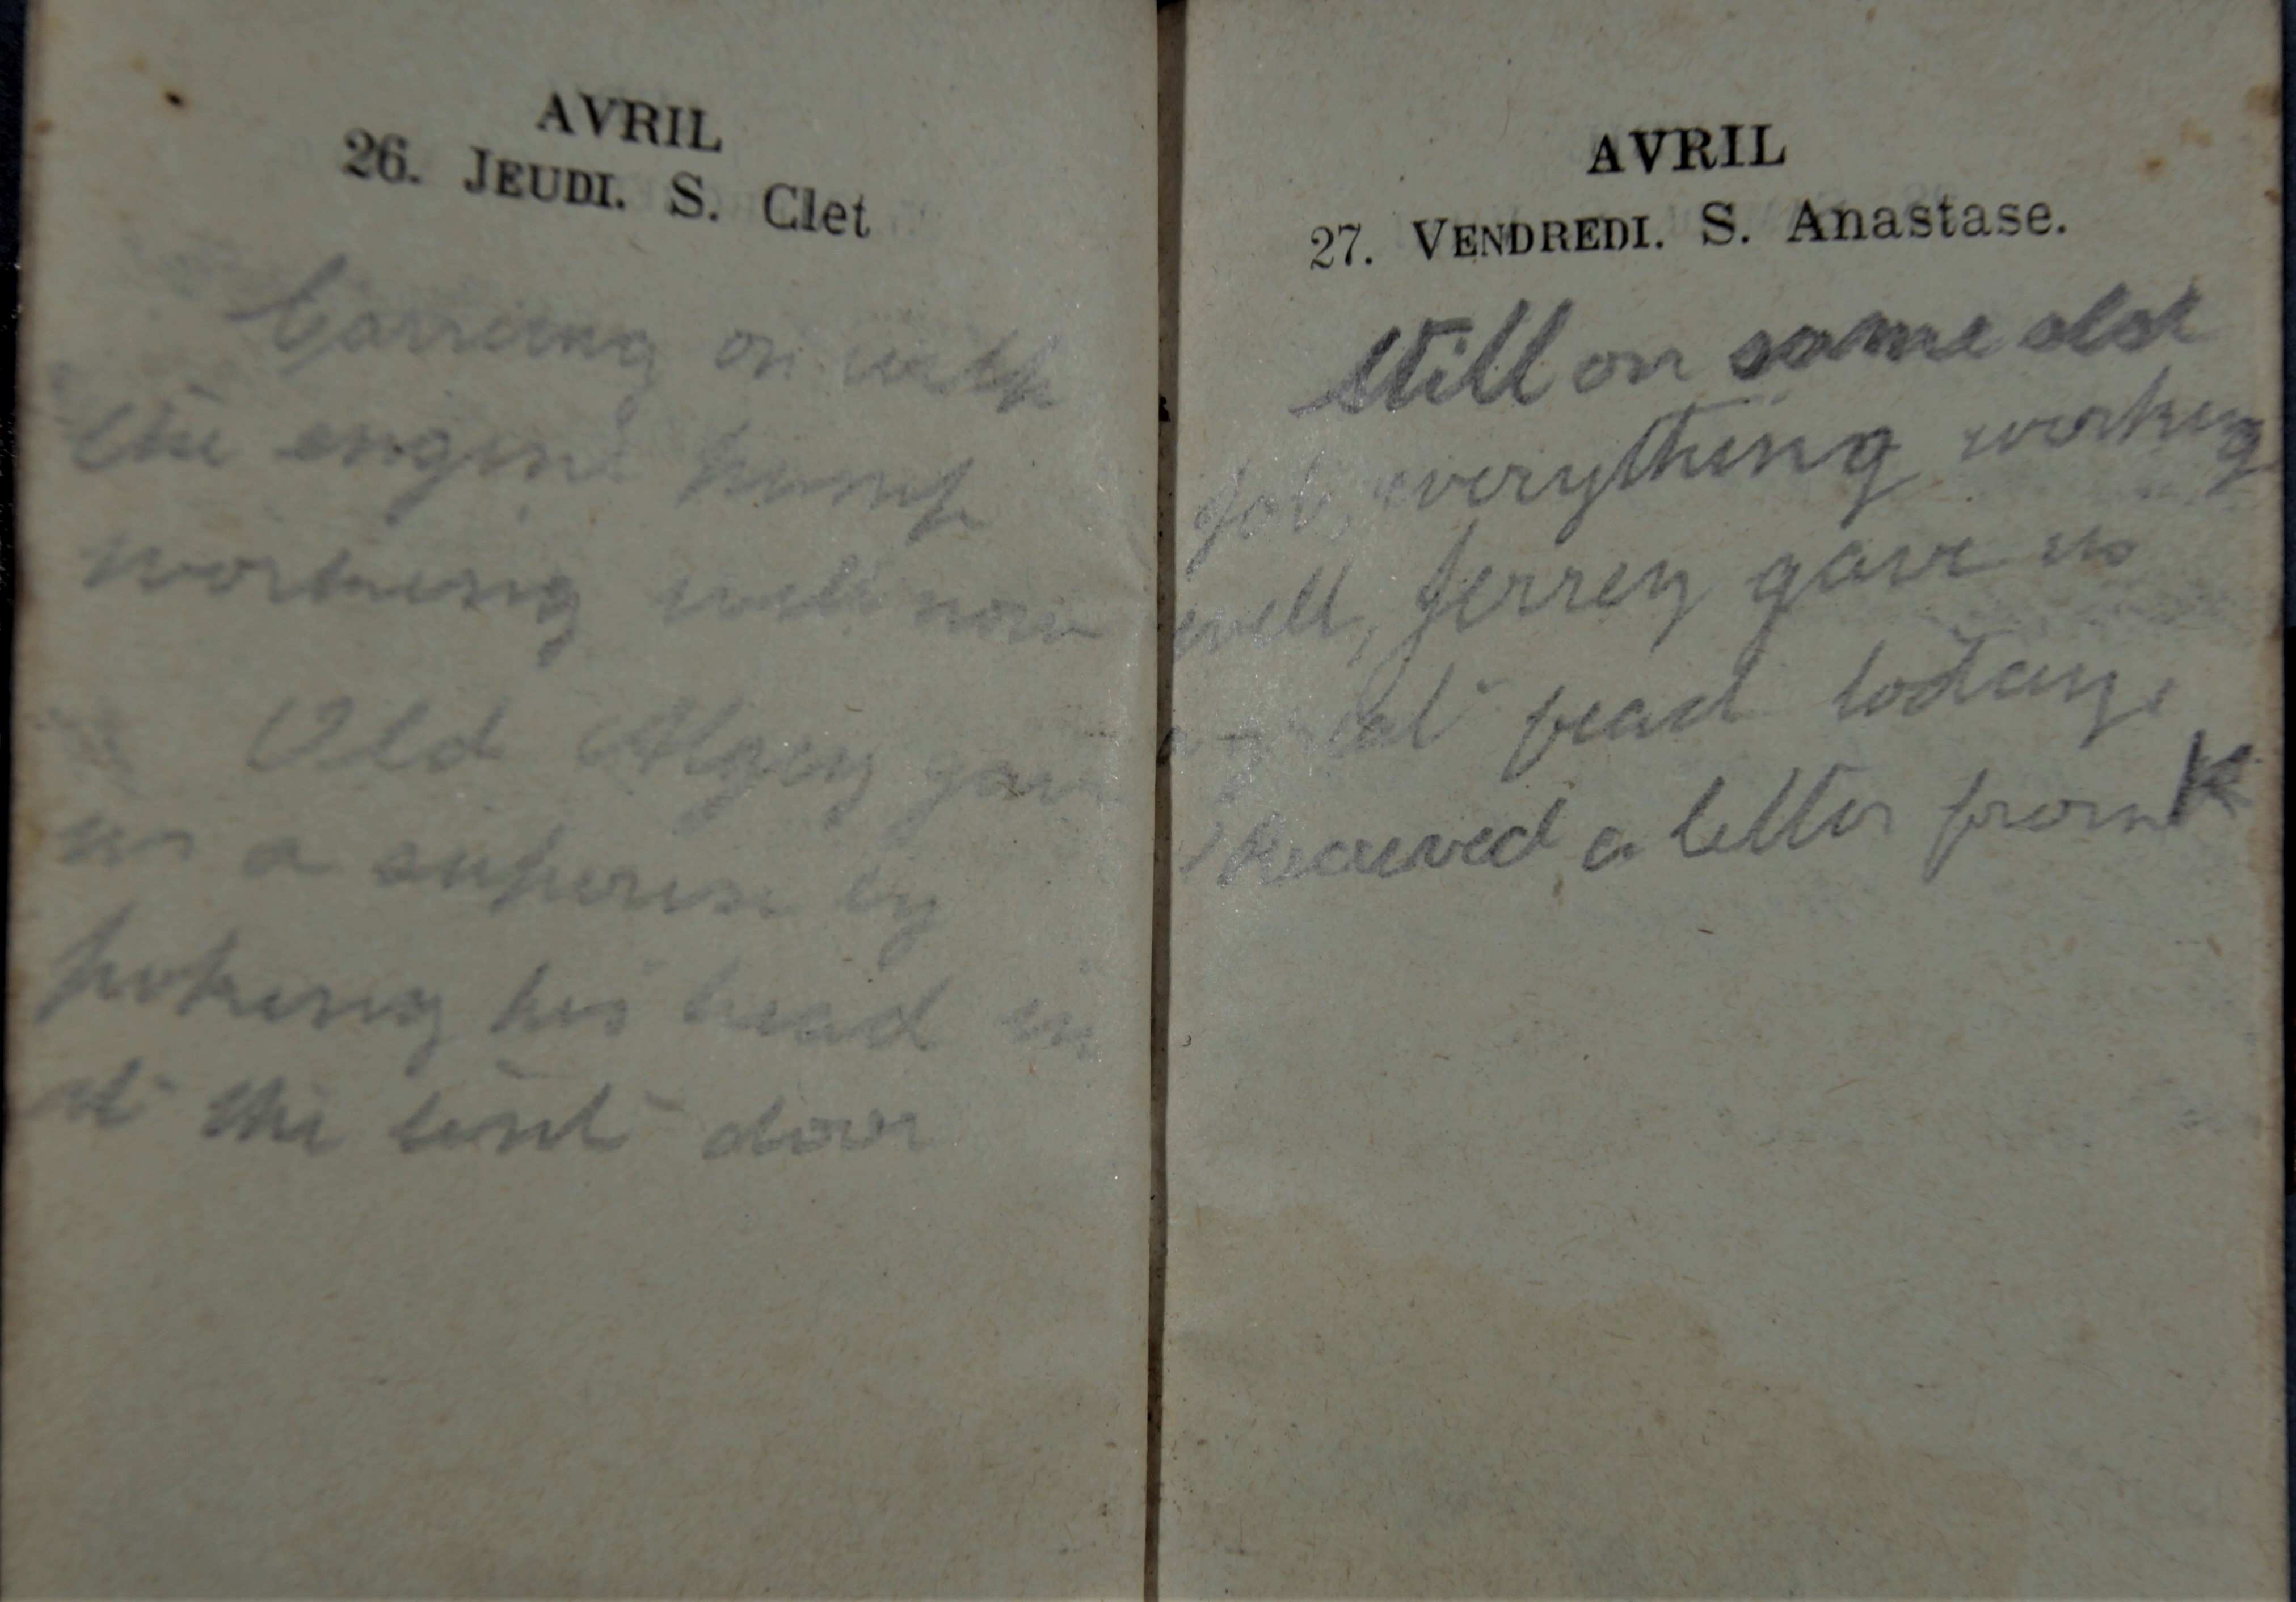 AVRIL
26. JEUDI. S. Clet
Carrieng on with
the engine pump
working well now
Old Algey gave
us a suporise by
poking his head in
at the tent door
AVRIL
27. VENDREDI. S. Anastase.
Still on same old
job, everything working
well, Jerrey gave us
a great fead today,
Received a letter from K